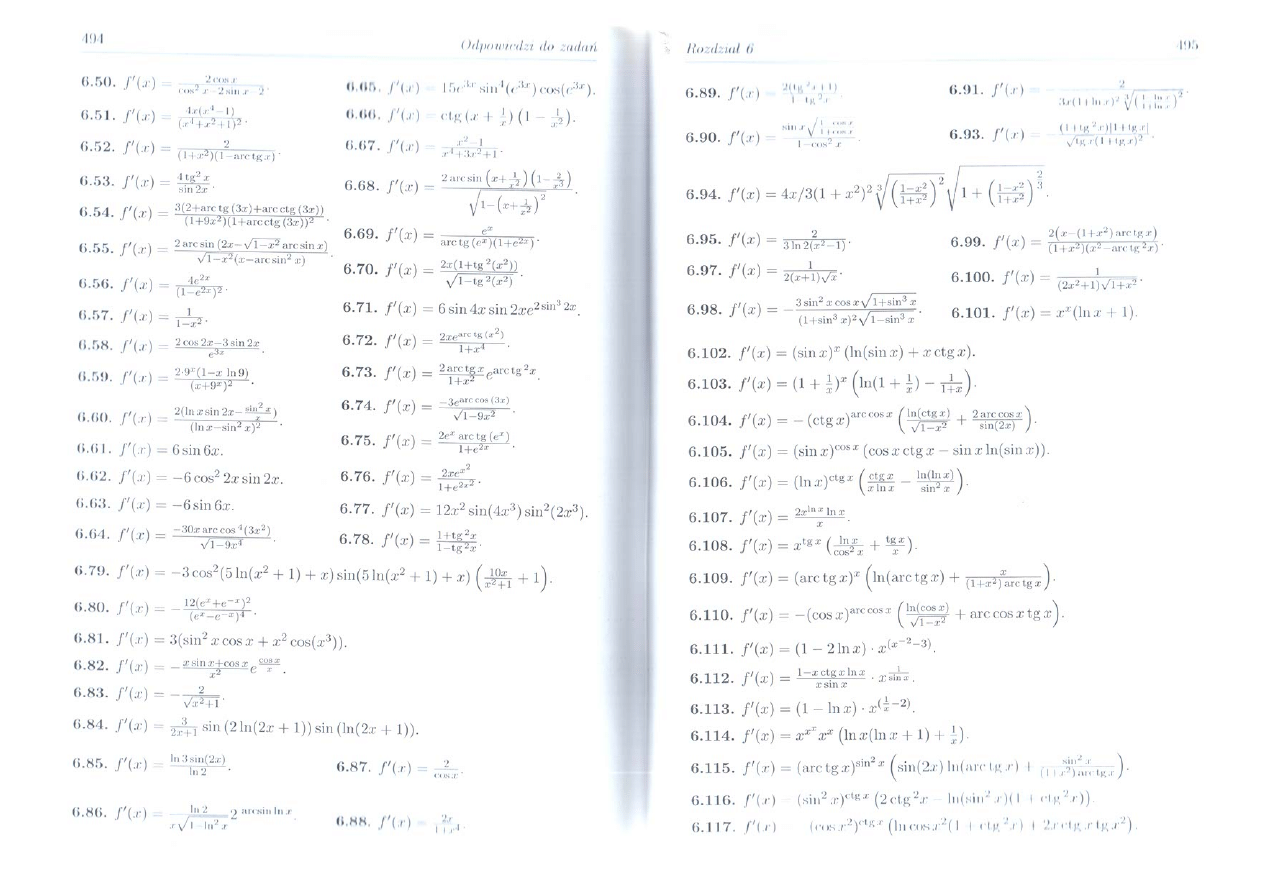 494
Odpowiedzi do zadań
6.50. f'(x) = \frac{2\cos x}{\cos^2 x-2\sin x-2}.
6.51. f'(x) = \frac{4x(x^4-1)}{(x^4+x^2+1)^2}.
6.52. f'(x) = \frac{2}{(1+x^2)(1-arc tg x)}.
6.53. f'(x) = \frac{4 tg^2 x}{\sin 2x}.
6.54. f'(x) = \frac{3(2+arc tg (3x)+arc ctg (3x))}{(1+9x^2)(1+arc ctg (3x))^2}.
6.55. f'(x) = \frac{2 arc sin (2x-\sqrt{1-x^2} arc sin x)}{\sqrt{1-x^2}(x-arc sin^2 x)}.
6.56. f'(x) = \frac{4e^{2x}}{(1-e^{2x})^2}.
6.57. f'(x) = \frac{1}{1-x^2}.
6.58. f'(x) = \frac{2\cos 2x-3\sin 2x}{e^{3x}}.
6.59. f'(x) = \frac{2·9^x(1-x ln 9)}{(x+9^x)^2}.
6.60. f'(x) = \frac{2(\ln x \sin 2x-\frac{\sin^2 x}{x})}{(\ln x-\sin^2 x)^2}.
6.61. f'(x) = 6 sin 6x.
6.62. f'(x) = −6 cos^2 2x sin 2x.
6.63. f'(x) = −6 sin 6x.
6.64. f'(x) = \frac{-30x arc cos^4(3x^2)}{\sqrt{1-9x^4}}.
6.65. f'(x) = 15e^{3x} sin^4(e^{3x}) cos(e^{3x}).
6.66. f'(x) = ctg (x + \frac{1}{x}) (1 − \frac{1}{x^2}).
6.67. f'(x) = \frac{x^2-1}{x^4+3x^2+1}.
6.68. f'(x) = \frac{2 arc sin (x+\frac{1}{x^2})(1-\frac{2}{x^3})}{\sqrt{1-(x+\frac{1}{x^2})^2}}.
6.69. f'(x) = \frac{e^x}{arc tg (e^x)(1+e^{2x})}.
6.70. f'(x) = \frac{2x(1+tg^2(x^2))}{\sqrt{1-tg^2(x^2)}}.
6.71. f'(x) = 6 sin 4x sin 2xe^{2 sin^3 2x}.
6.72. f'(x) = \frac{2xe^{arc tg (x^2)}}{1+x^4}.
6.73. f'(x) = \frac{2 arc tg x}{1+x^2}e^{arc tg^2 x}.
6.74. f'(x) = \frac{-3e^{arc cos (3x)}}{\sqrt{1-9x^2}}.
6.75. f'(x) = \frac{2e^x arc tg (e^x)}{1+e^{2x}}.
6.76. f'(x) = \frac{2xe^{x^2}}{1+e^{2x^2}}.
6.77. f'(x) = 12x^2 sin(4x^3) sin^2(2x^3).
6.78. f'(x) = \frac{1+tg^2 x}{1-tg^2 x}.
6.79. f'(x) = −3 cos^2(5 ln(x^2 + 1) + x) sin(5 ln(x^2 + 1) + x) (\frac{10x}{x^2+1} + 1).
6.80. f'(x) = −\frac{12(e^x+e^{-x})^2}{(e^x-e^{-x})^4}.
6.81. f'(x) = 3(sin^2 x cos x + x^2 cos(x^3)).
6.82. f'(x) = −\frac{x\sin x+\cos x}{x^2}e^{\frac{\cos x}{x}}.
6.83. f'(x) = −\frac{2}{\sqrt{x^2+1}}.
6.84. f'(x) = \frac{3}{2x+1} sin (2 ln(2x + 1)) sin (ln(2x + 1)).
6.85. f'(x) = \frac{\ln 3 \sin(2x)}{\ln 2}.
6.87. f'(x) = \frac{2}{\cos x}.
6.86. f'(x) = \frac{\ln 2}{x\sqrt{1-\ln^2 x}}2^{arcsin ln x}.
6.88. f'(x) = \frac{2x}{1+x^4}.
Rozdział 6
495
6.89. f'(x) = \frac{2(tg^2 x+1)}{1-tg^2 x}.
6.91. f'(x) =
6.90. f'(x) =
6.93. f'(x) = \frac{(1+tg^2 x)|1+tg x|}{\sqrt{tg x}(1+tg x)^2}.
6.94. f'(x) = 4x/3(1 + x^2)^2 \sqrt[3]{(\frac{1-x^2}{1+x^2})^2} \sqrt{1 + (\frac{1-x^2}{1+x^2})^{\frac{2}{3}}}.
6.95. f'(x) = \frac{2}{3 ln 2(x^2-1)}.
6.99. f'(x) = \frac{2(x-(1+x^2) arc tg x)}{(1+x^2)(x^2-arc tg^2 x)}.
6.97. f'(x) = \frac{1}{2(x+1)\sqrt{x}}.
6.100. f'(x) = \frac{1}{(2x^2+1)\sqrt{1+x^2}}.
6.98. f'(x) = −\frac{3\sin^2 x\cos x\sqrt{1+\sin^3 x}}{(1+\sin^3 x)^2\sqrt{1-\sin^3 x}}.
6.101. f'(x) = x^x(ln x + 1).
6.102. f'(x) = (sin x)^x (ln(sin x) + x ctg x).
6.103. f'(x) = (1 + \frac{1}{x})^x (ln(1 + \frac{1}{x}) − \frac{1}{1+x}).
6.104. f'(x) = − (ctg x)^{arc cos x} (\frac{\ln(ctg x)}{\sqrt{1-x^2}} + \frac{2 arc cos x}{\sin(2x)}).
6.105. f'(x) = (sin x)^{cos x} (cos x ctg x − sin x ln(sin x)).
6.106. f'(x) = (ln x)^{ctg x} (\frac{ctg x}{x ln x} − \frac{\ln(\ln x)}{\sin^2 x}).
6.107. f'(x) = \frac{2x^{\ln x} ln x}{x}.
6.108. f'(x) = x^{tg x} (\frac{\ln x}{\cos^2 x} + \frac{tg x}{x}).
6.109. f'(x) = (arc tg x)^x (ln(arc tg x) + \frac{x}{(1+x^2) arc tg x}).
6.110. f'(x) = −(cos x)^{arc cos x} (\frac{\ln(\cos x)}{\sqrt{1-x^2}} + arc cos x tg x).
6.111. f'(x) = (1 − 2 ln x) · x^{(x^{-2}-3)}.
6.112. f'(x) = \frac{1-x ctg x ln x}{x sin x} · x^{\frac{1}{\sin x}}.
6.113. f'(x) = (1 − ln x) · x^{(\frac{1}{x}-2)}.
6.114. f'(x) = x^{x^x}x^x (ln x(ln x + 1) + \frac{1}{x}).
6.115. f'(x) = (arc tg x)^{sin^2 x} (sin(2x) ln(arc tg x) + \frac{\sin^2 x}{(1+x^2) arc tg x}).
6.116. f'(x) = (sin^2 x)^{ctg x} (2 ctg^2 x − ln(sin^2 x)(1 + ctg^2 x)).
6.117. f'(x) = (cos x^2)^{ctg x} (ln cos x^2(1 + ctg^2 x) + 2x ctg x tg x^2).